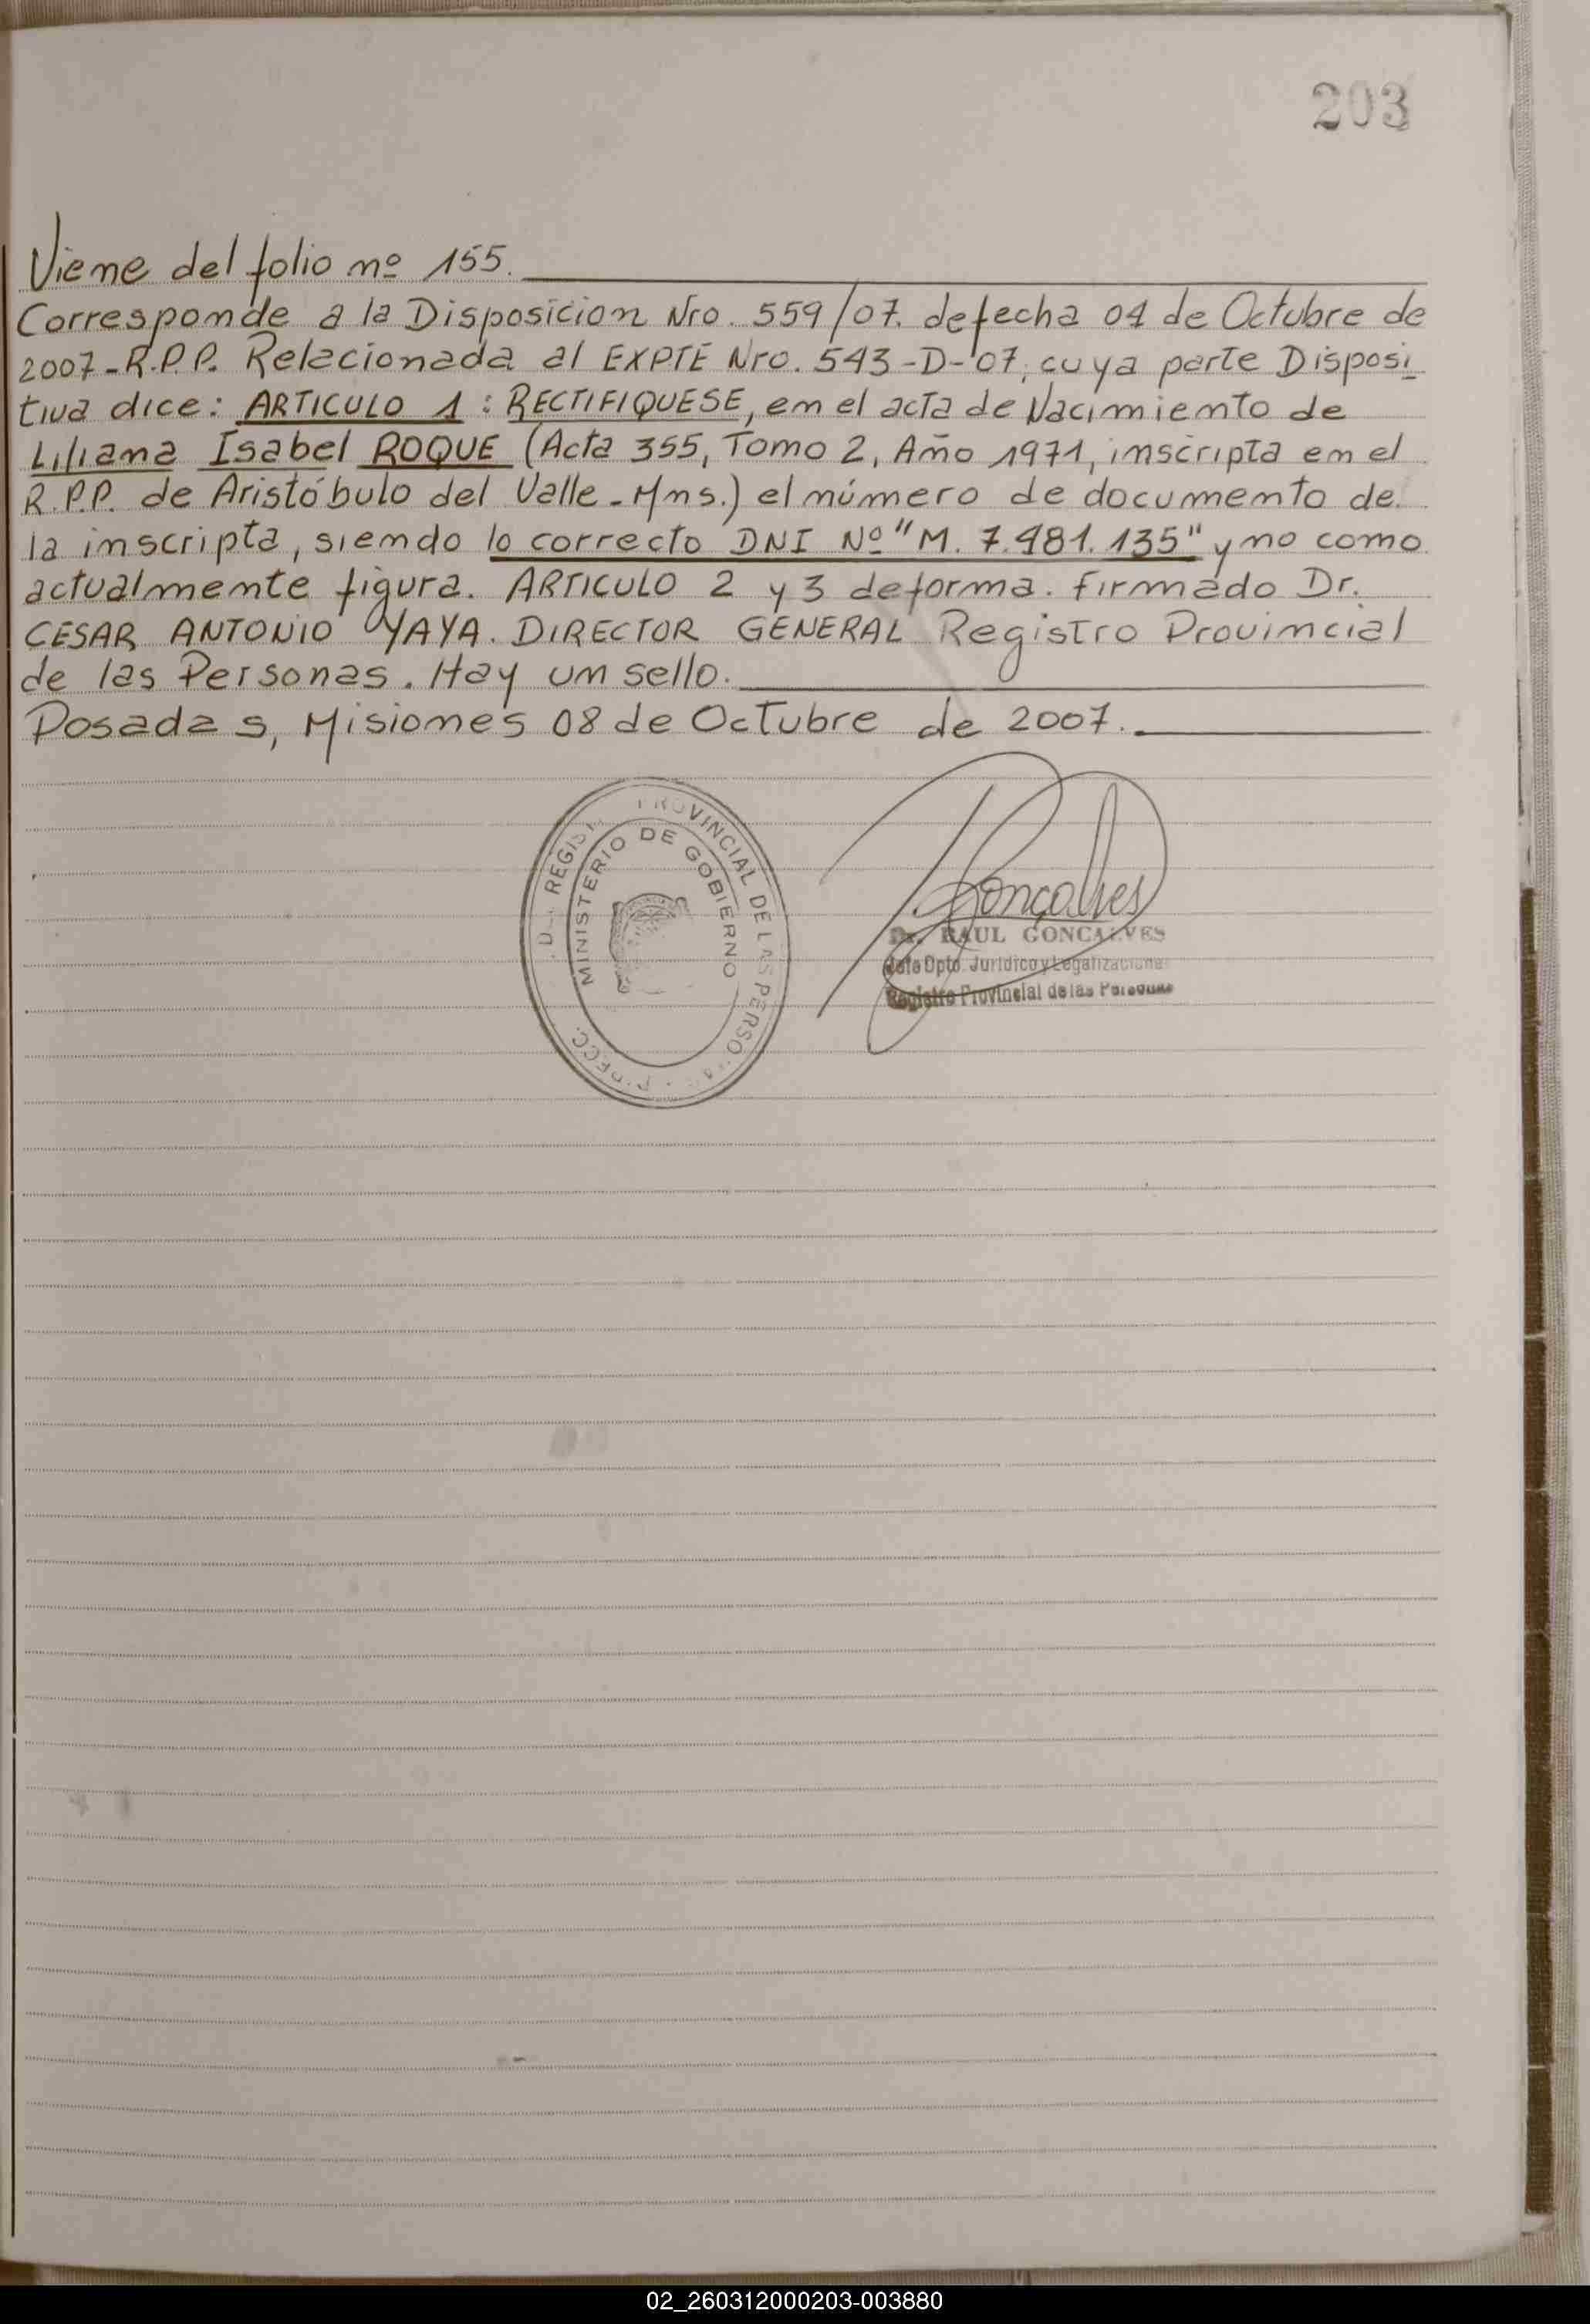 203
Viene del folio nº 155.
Corresponde a la Disposicion Nro. 559/07. de fecha 04 de Octubre de
2007-R.P.P. Relacionada al EXPTE Nro. 543-D-07, cuya parte Disposi
tiva dice: ARTICULO 1: RECTIFIQUESE, en el acta de Nacimiento de
Liliana Isabel ROQUE (Acta 355, Tomo 2, Año 1971, inscripta en el
R.P.P. de Aristóbulo del Valle-Mns.) el número de documento de
la inscripta, siendo lo correcto DNI Nº "M. 7.481.135" y no como
actualmente figura. ARTICULO 2 y 3 de forma. Firmado Dr.
CESAR ANTONIO YAYA. DIRECTOR GENERAL Registro Provincial
de las Personas. Hay un sello.
Posadas, Misiones 08 de Octubre de 2007.
PROVINCIAL DE LAS
MINISTERIO DE GOBIERNO
Gonçalves
Dr. RAUL GONCALVES
Jefe Dpto. Juridico y Legalizacione
Registro Provincial de las Personas
02_260312000203-003880